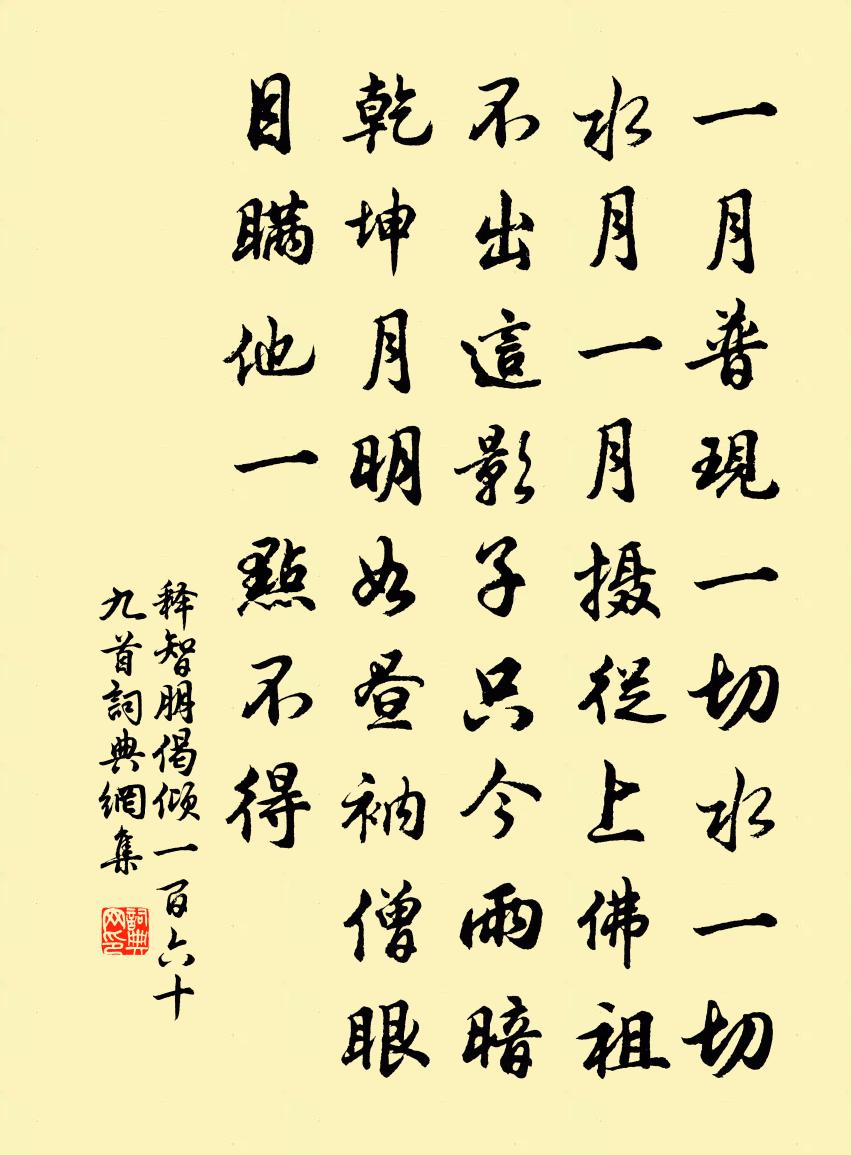 一月普現一切水一切
水月一月摄從上佛祖
不出這影子只今雨暗
乾坤月明如昼衲僧眼
目瞞他一點不得
释智朋偈倾一百六十
九首詞典網集
詞典網印